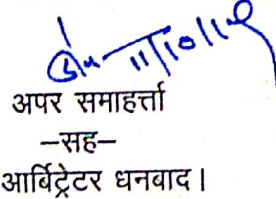 11/10/19
अपर समाहर्त्ता
–सह–
आर्बिट्रेटर धनबाद।